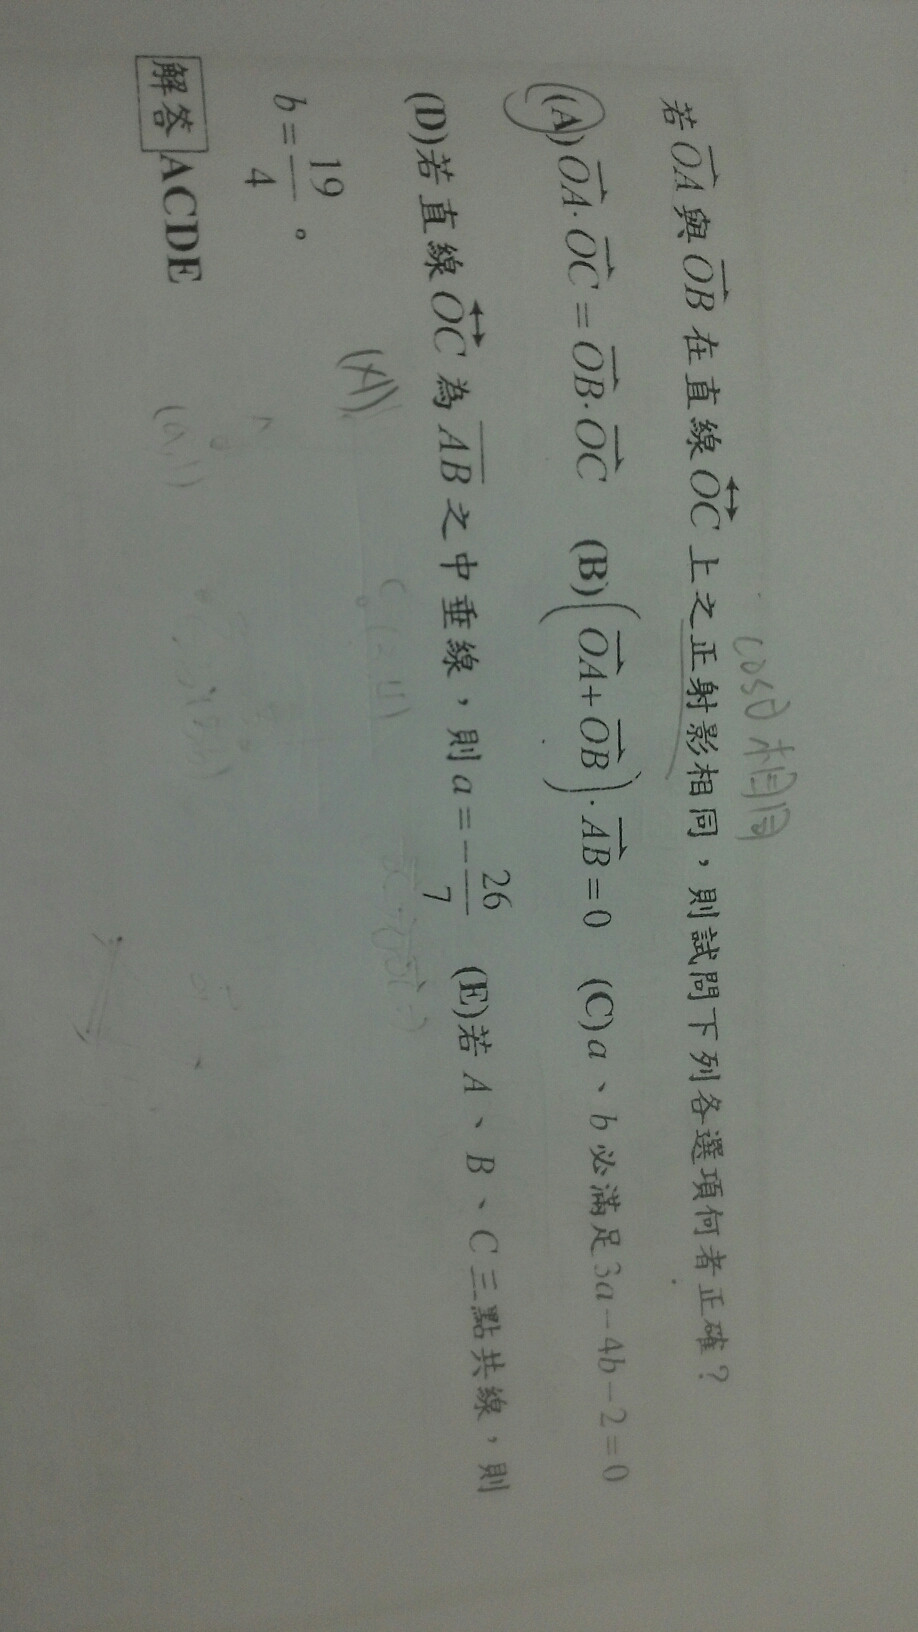 cosθ相同
若OA與OB在直線OC上之正射影相同，則試問下列各選項何者正確？
(A)OA·OC=OB·OC (B)(OA+OB)·AB=0 (C)a、b必滿足3a-4b-2=0
(D)若直線OC為AB之中垂線，則a=-26/7 (E)若A、B、C三點共線，則
b=19/4。
解答 ACDE